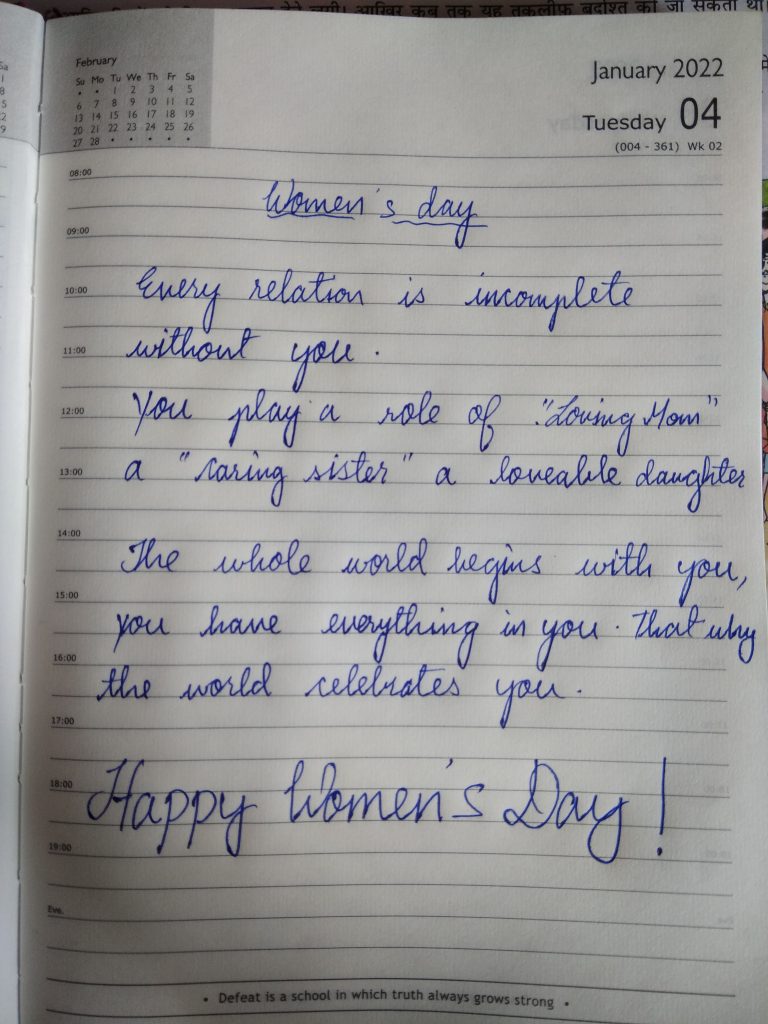 देने लगी। आखिर कब तक यह तकलीफ़ बर्दाश्त की जा सकती थी।
February
Su Mo Tu We Th Fr Sa
• • 1 2 3 4 5
6 7 8 9 10 11 12
13 14 15 16 17 18 19
20 21 22 23 24 25 26
27 28 • • • • •
January 2022
Tuesday 04
(004 - 361) Wk 02
08:00
Women's day
09:00
10:00 Every relation is incomplete
11:00 without you.
12:00 You play a role of "Loving Mom"
13:00 a "caring sister" a loveable daughter
14:00
The whole world begins with you,
15:00
you have everything in you. That why
16:00
the world celebrates you.
17:00
18:00 Happy Women's Day!
19:00
Eve.
• Defeat is a school in which truth always grows strong •